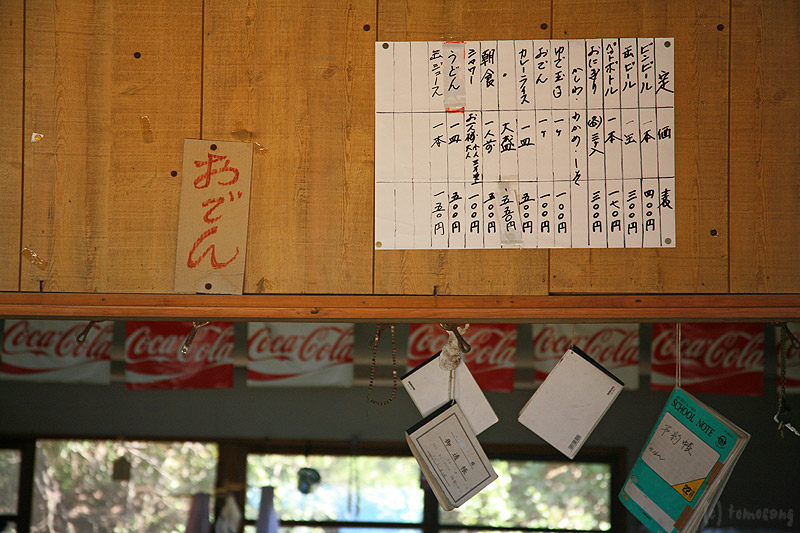 定価表
ビンビール 一本 四〇〇円
缶ビール 一缶 三〇〇円
ペットボトル 一本 一七〇円
おにぎり 三ヶ入 三〇〇円
かしわ・わかめ・しそ
ゆで玉子 一ヶ 一〇〇円
おでん 一ヶ 一〇〇円
カレーライス 一皿 五〇〇円
大盛 五五〇円
朝食 一人前 五〇〇円
シャワー お一人様 一〇〇円
うどん 一皿 五〇〇円
缶ジュース 一本 一五〇円
おでん
Coca-Cola
Coca-Cola
Coca-Cola
Coca-Cola
Coca-Cola
Coca-Cola
御通帳
SCHOOL NOTE
予約帳
(c) tomosang